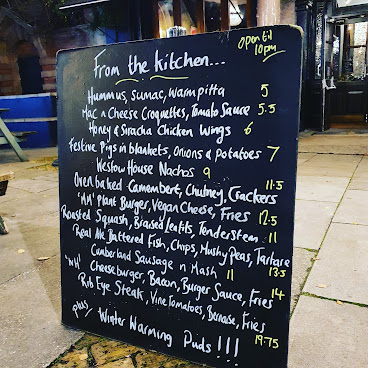 From the kitchen...
open til 10pm
Hummus, Sumac, Warm pitta 5
Mac n Cheese Croquettes, Tomato Sauce 5.5
Honey & Siracha Chicken Wings 6
Festive Pigs in blankets, Onions & Potatoes 7
Westow House Nachos 9
Oven baked Camembert, Chutney, Crackers 11.5
"MM" Plant Burger, Vegan Cheese, Fries 12.5
Roasted Squash, Braised Lentils, Tenderstem 11
Real Ale Battered Fish, Chips, Mushy Peas, Tartare 13.5
Cumberland Sausage n Mash 11
"WH" Cheeseburger, Bacon, Burger Sauce, Fries 14
Rib Eye Steak, Vine Tomatoes, Bernaise, Fries 19.75
plus, Winter Warming Puds!!!